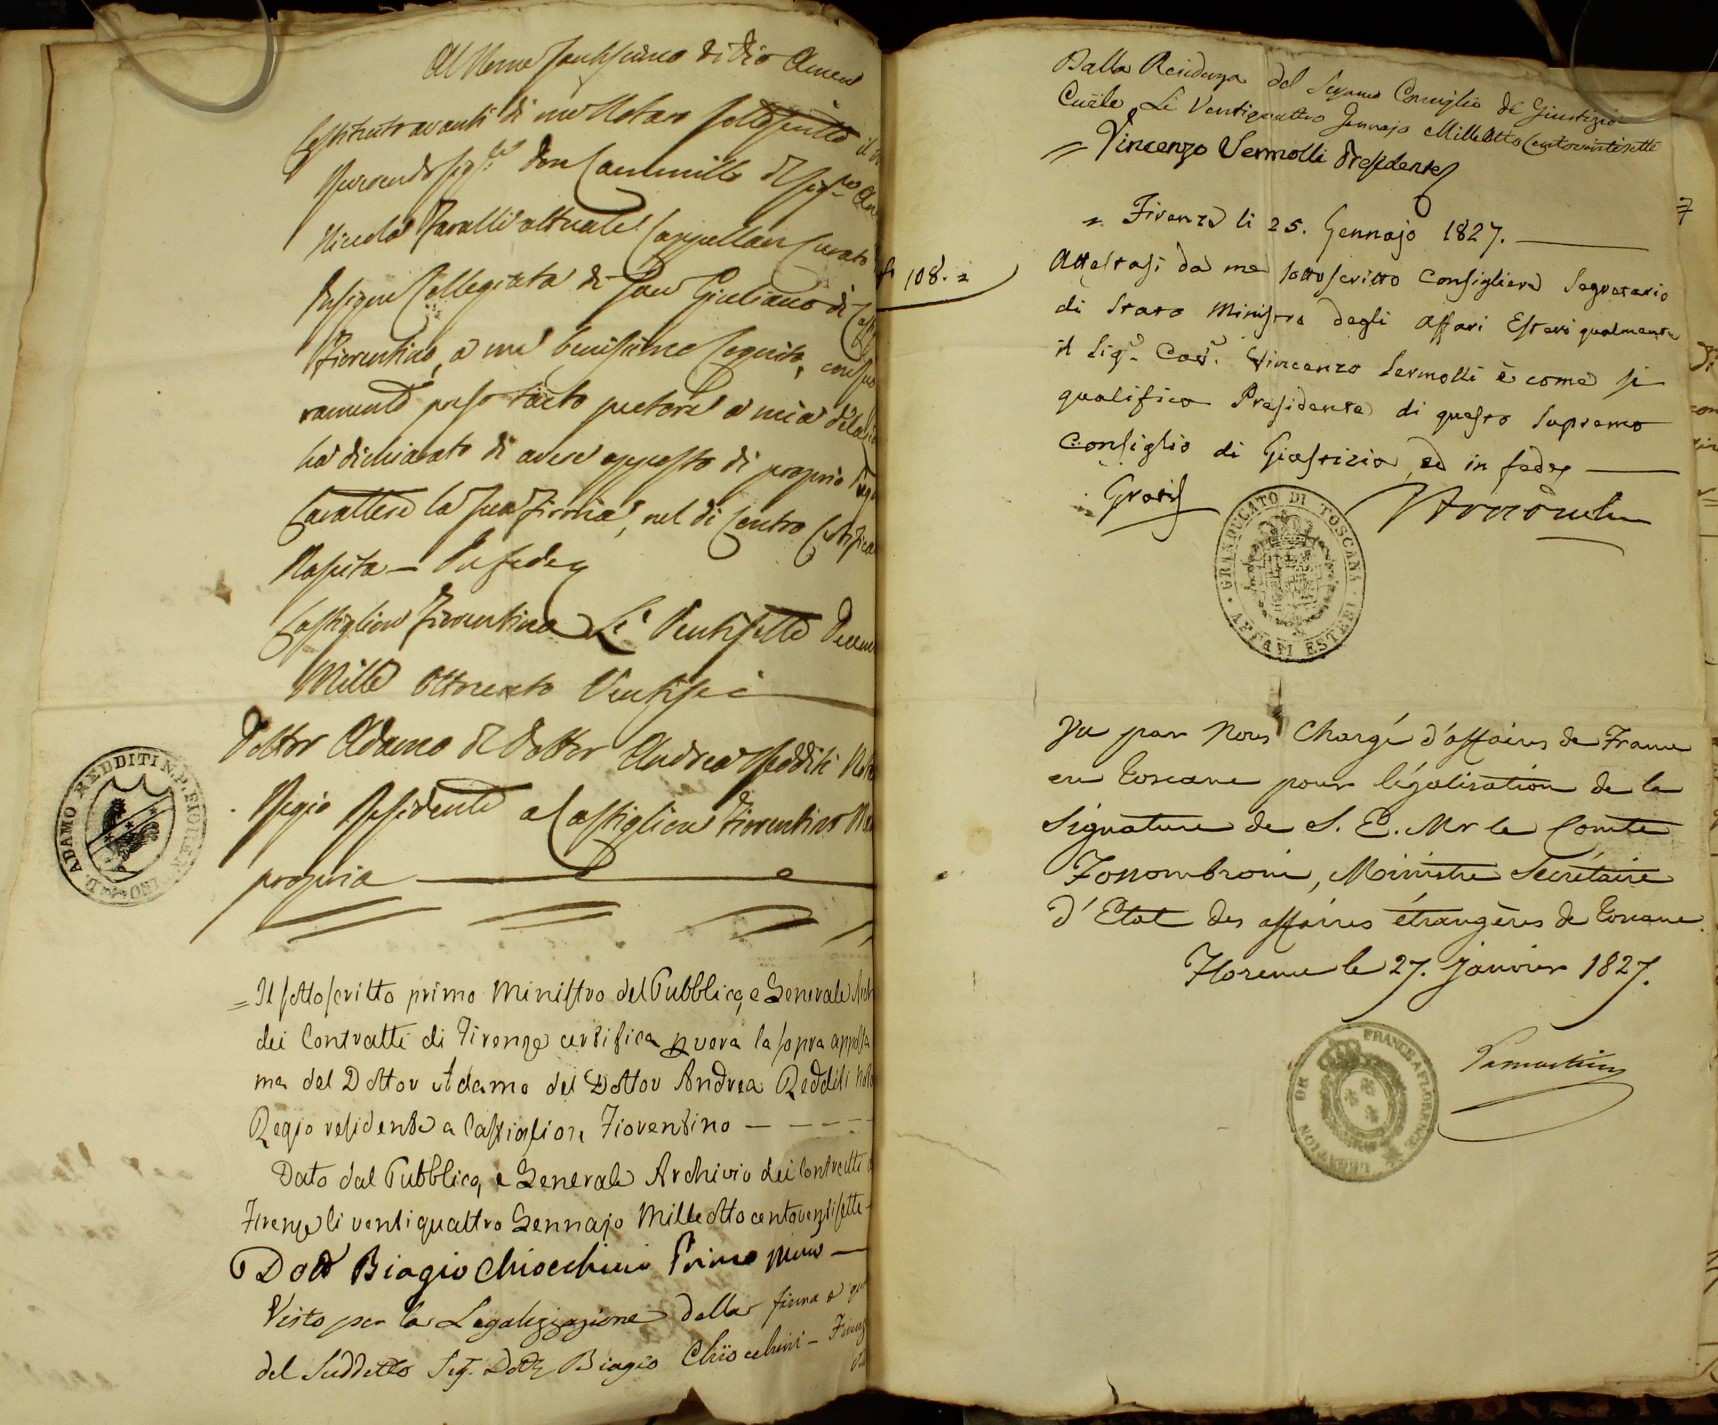 Al Nome Santissimo di Dio Amen
Costituto avanti di me Notaro sottoscritto il
Reverendo Sig.re Don Cammillo del Sig.re
Niccola Tavalli attuale Cappellan Curato
Insigne Collegiata di San Giuliano di
Fiorentino, a me benissimo cognito,
ramento preso tacto pectore a mia
ha dichiarato di avere apposto di proprio
Carattere la sua firma, nel di Contro
Nascita — In fede
Castiglion Fiorentino Li Ventisette
Mille Ottocento Ventisei
Dottor Adamo del Dottor Andrea Redditi
Regio Residente a Castiglion Fiorentino
propria
D. ADAMO REDDITI N. P. FIORENTINO
= Il sottoscritto primo Ministro del Pubblico, e Generale
dei Contratti di Firenze certifica vera la sopra
ma del Dottor Adamo del Dottor Andrea Redditi
Regio residente a Castiglion Fiorentino — — — — —
Dato dal Pubblico, e Generale Archivio dei Contratti
Firenze li ventiquattro Gennajo Mille otto centoventisette
Dott Biagio Chiocchini Primo Min.o —
Visto per la Legalizzazione della firma
del Suddetto Sig. Dott. Biagio Chiocchini —
108. 2
Dalla Residenza del Supremo Consiglio di Giustizia
Civile Li Ventiquattro Gennajo Mille Otto Centoventisette
= Vincenzo Sermolli Presidente
7
= Firenze li 25. Gennajo 1827. —
Attestasi da me sottoscritto Consigliere Segretario
di Stato Ministro degli Affari Esteri qualmente
il Sig.e Cav.e Vincenzo Sermolli è come si
qualifica Presidente di questo Supremo
Consiglio di Giustizia, ed in fede —
Gratis
GRANDUCATO DI TOSCANA · AFFARI ESTERI ·
Vu par Nous Chargé d'affaires de France
en Toscane pour légalisation de la
Signature de S. E. Mr le Comte
Fossombroni, Ministre Secrétaire
d'Etat des affaires étrangères de Toscane.
Florence le 27. janvier 1827.
LEGATION DE FRANCE A FLORENCE
Lamartine